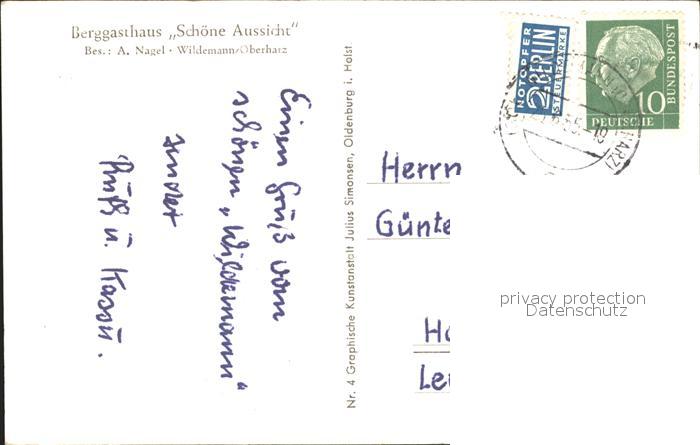 Berggasthaus „Schöne Aussicht"
Bes.: A. Nagel · Wildemann/Oberharz
Einen Gruß vom
schönen „Wildemann"
sendet
Nr. 4 Graphische Kunstanstalt Julius Simonsen, Oldenburg i. Holst
NOTOPFER
2 BERLIN
STEUERMARKE
10
DEUTSCHE
BUNDESPOST
HARZ)
Herrn
Günte
Ha
Le
privacy protection
Datenschutz